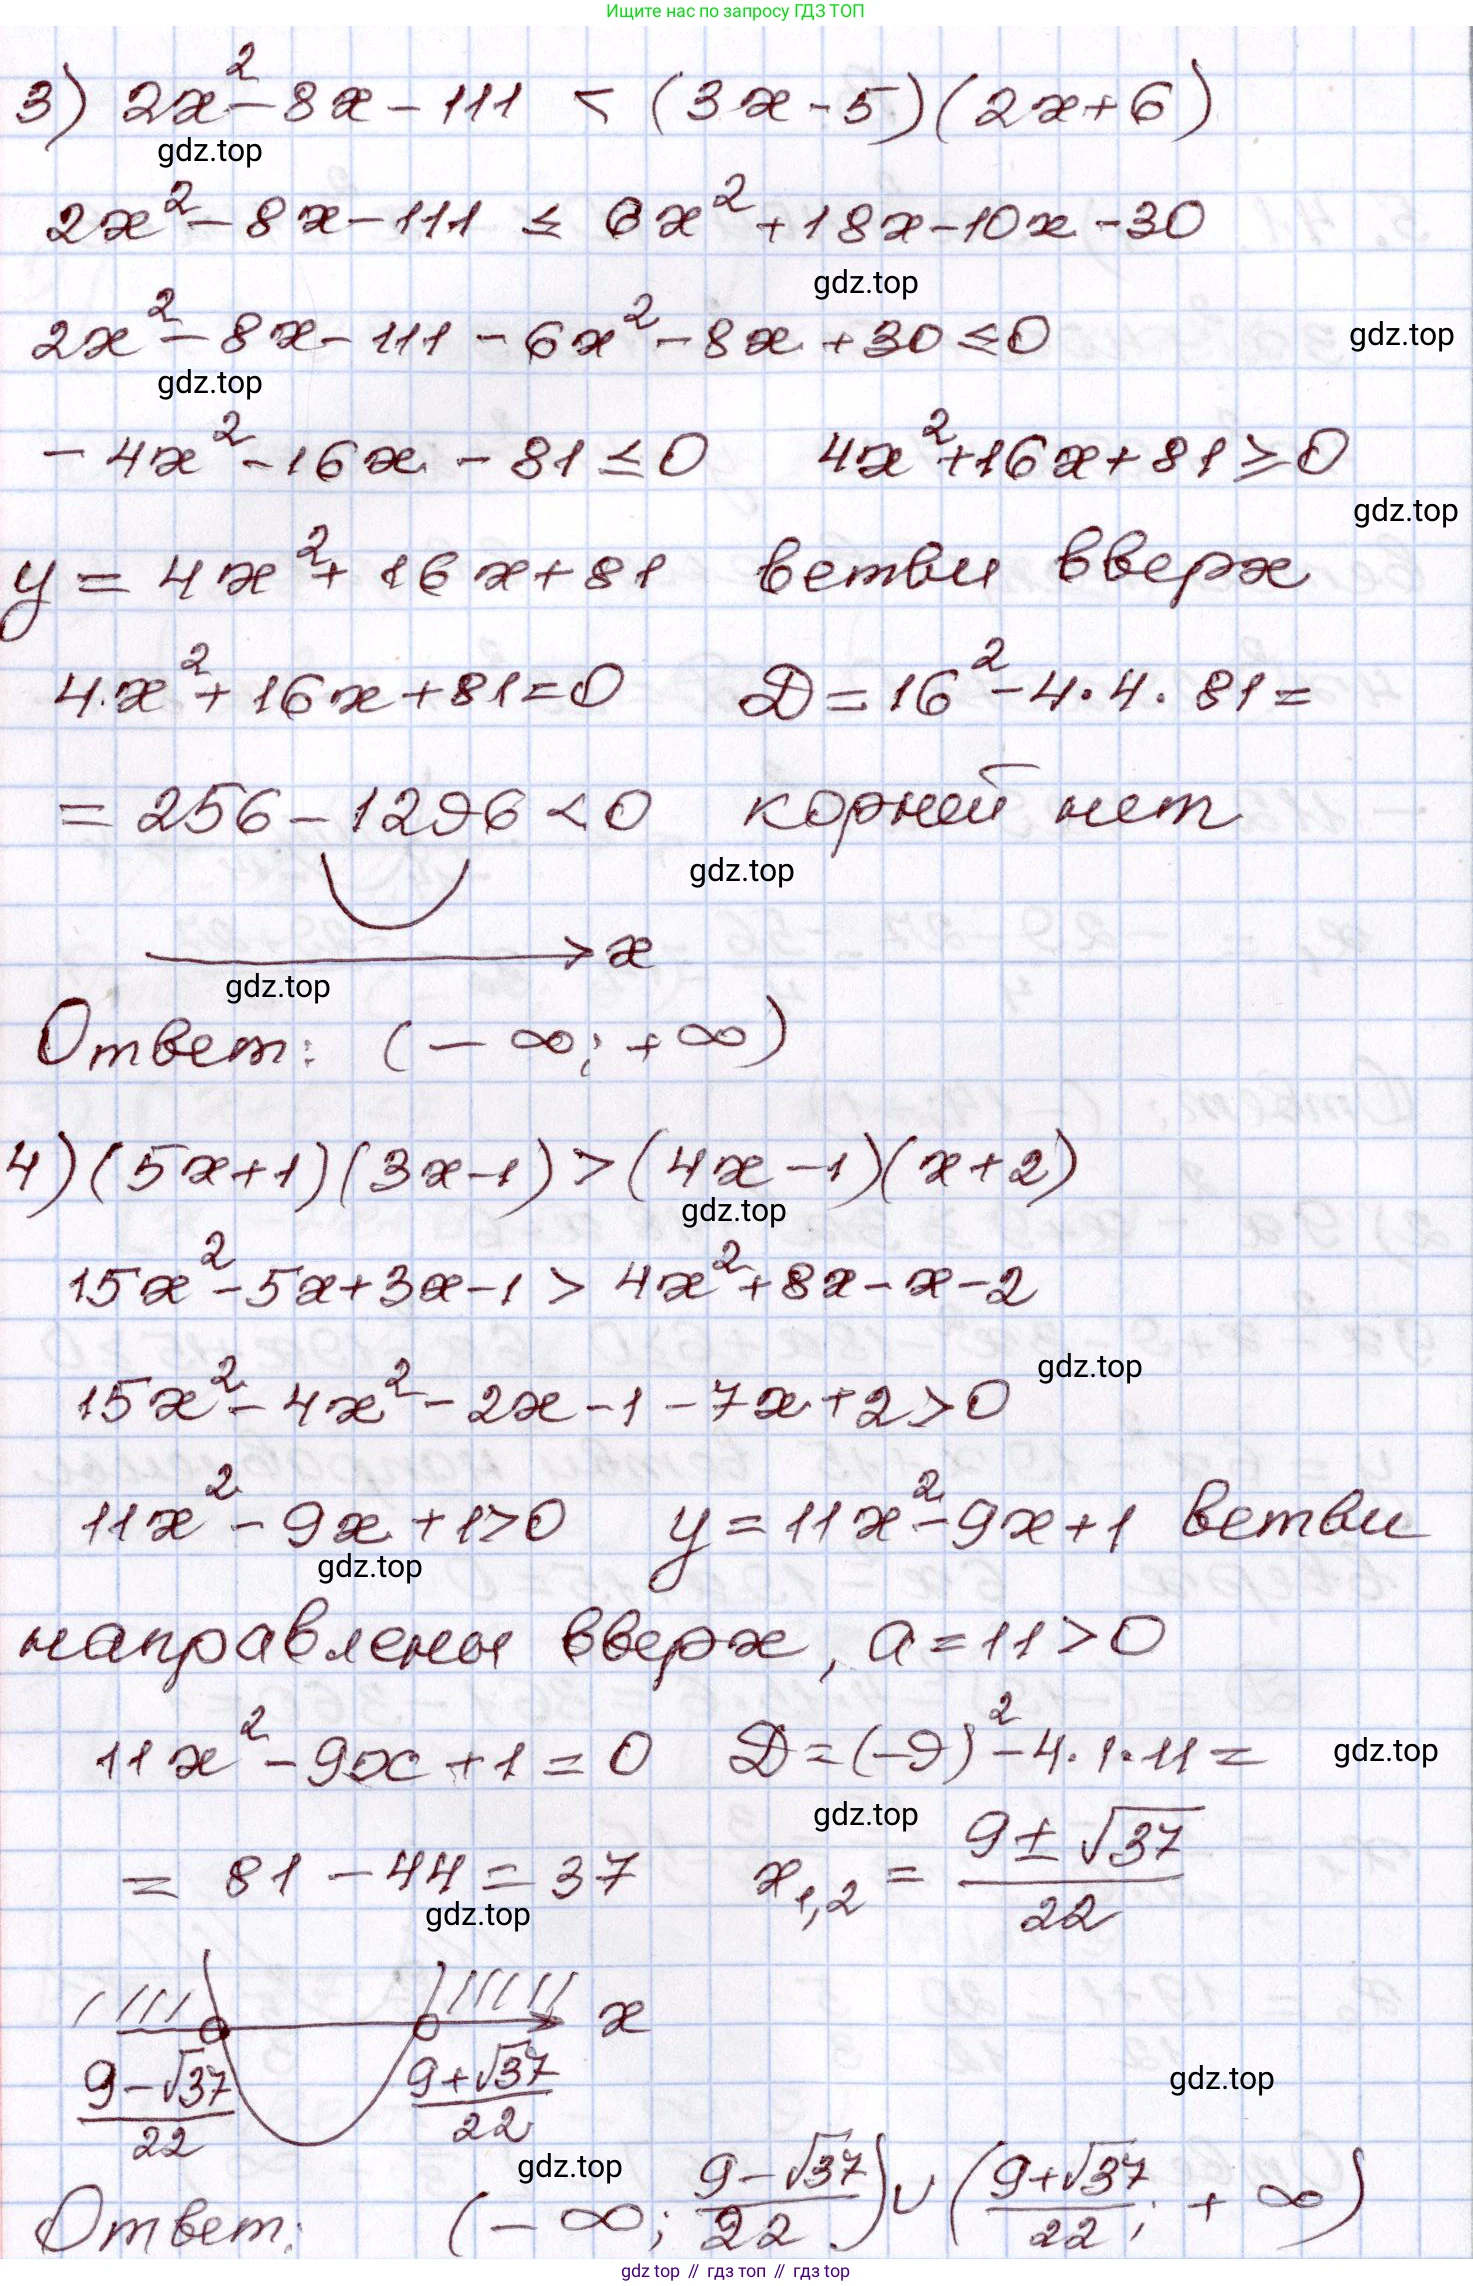 Ищите нас по запросу ГДЗ ТОП
3) 2x² - 8x - 111 < (3x - 5)(2x + 6)
gdz.top
2x² - 8x - 111 ≤ 6x² + 18x - 10x - 30
gdz.top
2x² - 8x - 111 - 6x² - 8x + 30 ≤ 0
gdz.top
gdz.top
- 4x² - 16x - 81 ≤ 0 4x² + 16x + 81 ≥ 0
gdz.top
y = 4x² + 16x + 81 ветви вверх
4·x² + 16x + 81 = 0 D = 16² - 4·4·81 =
= 256 - 1296 < 0 корней нет
gdz.top
x
gdz.top
Ответ: (- ∞; + ∞)
4) (5x + 1)(3x - 1) > (4x - 1)(x + 2)
gdz.top
15x² - 5x + 3x - 1 > 4x² + 8x - x - 2
gdz.top
15x² - 4x² - 2x - 1 - 7x + 2 > 0
11x² - 9x + 1 > 0 y = 11x² - 9x + 1 ветви
gdz.top
направлены вверх, a = 11 > 0
11x² - 9x + 1 = 0 D = (-9)² - 4·1·11 =
gdz.top
gdz.top
= 81 - 44 = 37 x₁,₂ = (9 ± √37)/22
gdz.top
x
(9 - √37)/22 (9 + √37)/22
gdz.top
gdz.top
Ответ: (- ∞; (9 - √37)/22) ∪ ((9 + √37)/22; + ∞)
gdz top // гдз топ // gdz top